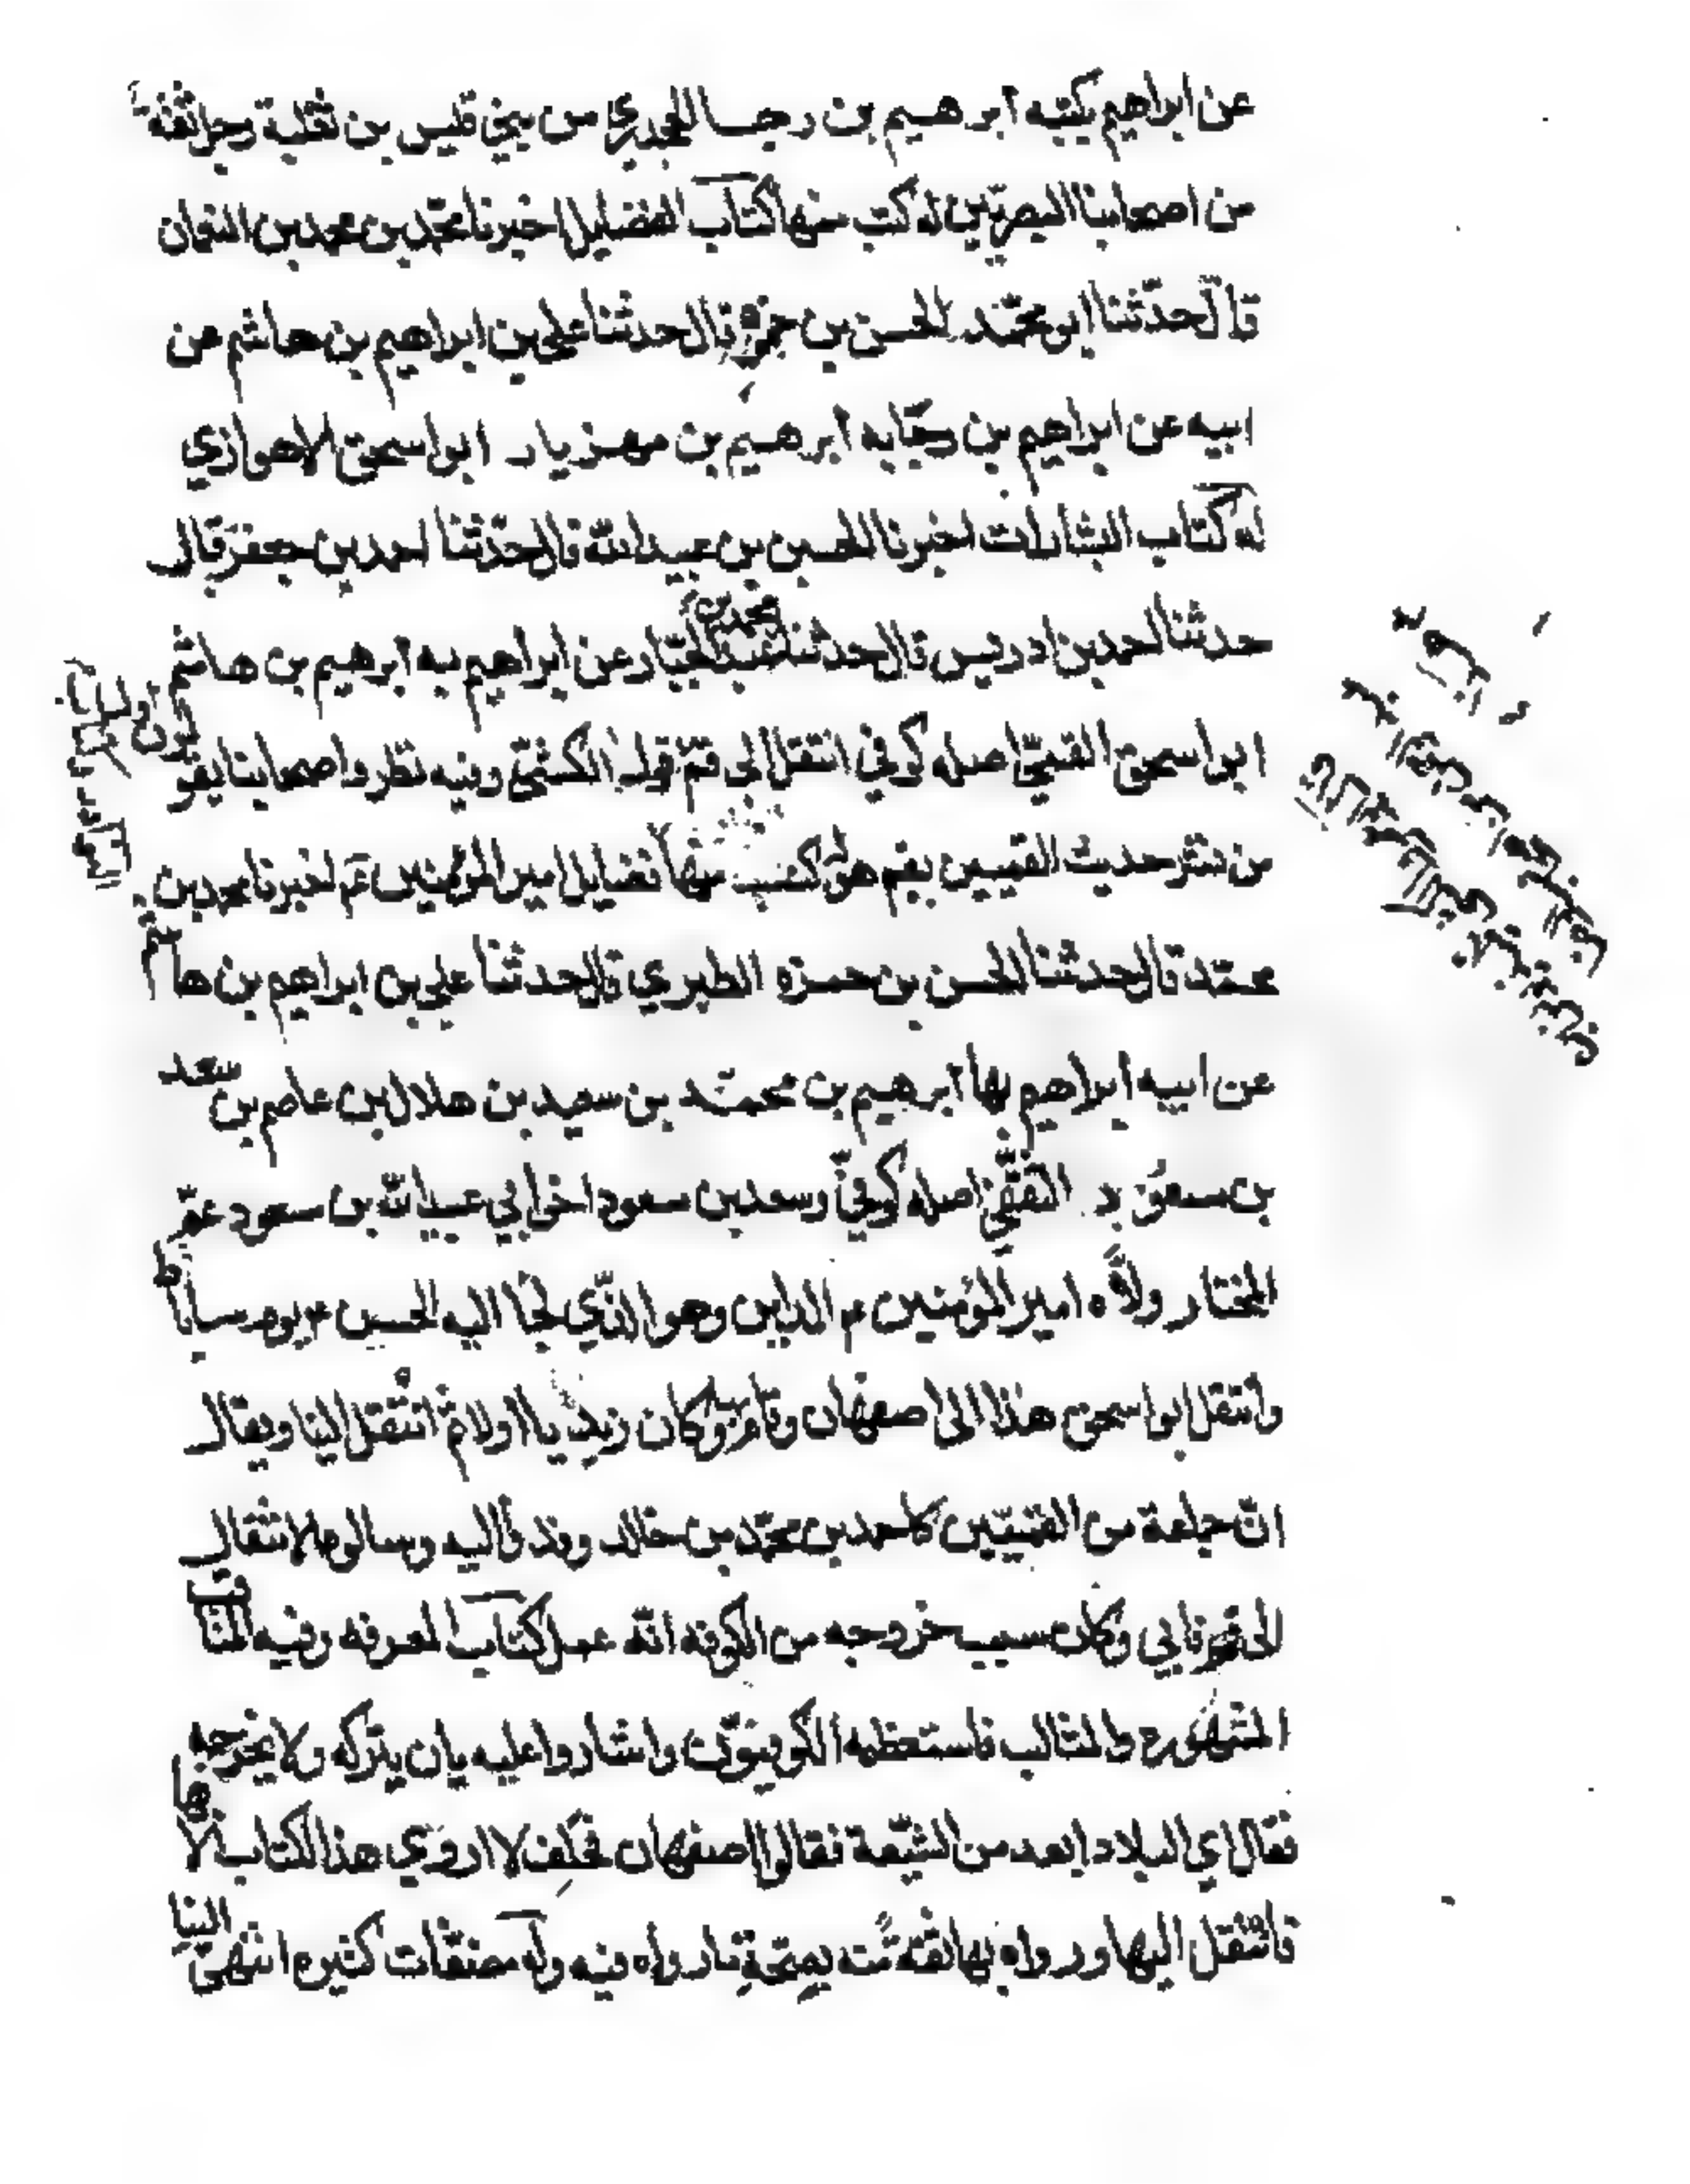 عن ابراهيم بكتبه ابرهيم بن رجا الجحدري من بني قيس بن ثعلبة رجل ثقة
من اصحابنا البصريين له كتب منها كتاب الفضايل اخبرنا محمد بن محمد بن النعمان
قال حدثنا ابو محمد الحسن بن حمزة قال حدثنا علي بن ابراهيم بن هاشم عن
ابيه عن ابراهيم بن رجا به ابرهيم بن مهزيار ابو اسحق الاهوازي
له كتاب البشارات اخبرنا الحسين بن عبيد الله قال حدثنا احمد بن جعفر قال
حدثنا احمد بن ادريس قال حدثنا محمد بن عبد الجبار عن ابراهيم به ابرهيم بن هاشم
ابو اسحق القمي اصله كوفي انتقل الى قم قال الكشي وفيه نظر واصحابنا يقو
من نشر حديث القميين بقم هو له كتب منها فضايل امير المؤمنين ع اخبرنا محمد بن
محمد قال حدثنا الحسن بن حمزه الطبري قال حدثنا علي بن ابراهيم بن هاشم
عن ابيه ابراهيم بها ابرهيم بن محمد بن سعيد بن هلال بن عاصم بن سعد
بن مسعود الثقفي اصله كوفي وسعد بن مسعود اخو ابي عبيد الله بن مسعود عم
المختار ولاه امير المؤمنين م المداين وهو الذي لجأ اليه الحسن ع يوم ساباط
وانتقل ابو اسحق هذا الى اصفهان واقام بها وكان زيديا اولا ثم انتقل الينا ويقال
ان جماعة من القميين كاحمد بن محمد بن خالد وفدوا اليه وسالوه الانتقال
الى قم فابى وكان سبب خروجه من الكوفه انه عمل كتاب المعرفه وفيه المناقب
المشهوره والمثالب فاستعظمه الكوفيون واشاروا عليه بان يتركه ولا يخرجه
فقال اي البلاد ابعد من الشيعة فقالوا اصفهان فحلف لا اروي هذا الكتاب الا بها
فانتقل اليها ورواه بها ثقة منه بصحة ما رواه فيه وله مصنفات كثيره انتهى الينا